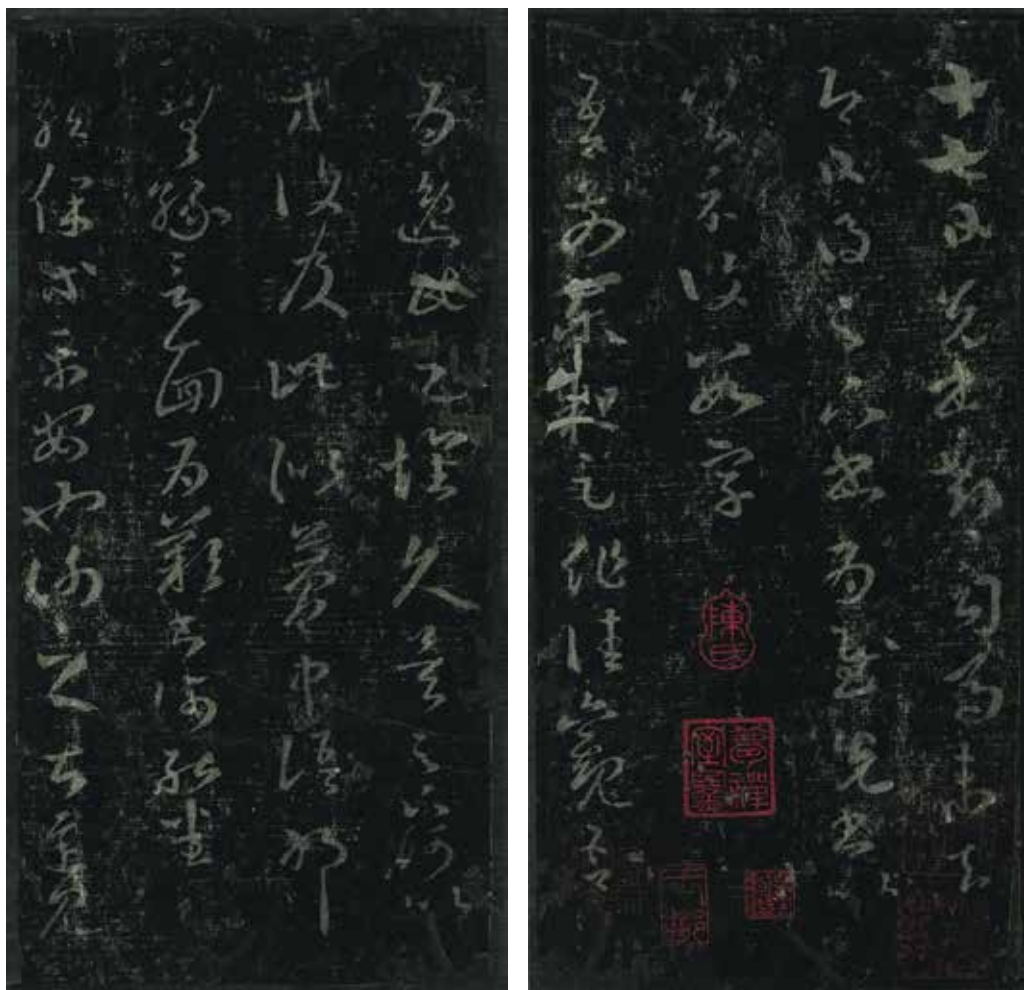 十七日先書郗司馬未去
即日得足下書為慰先書以
具示復數字
吾前東粗足作佳觀吾
為逸民之懷久矣足下何以
方復及此似夢中語耶
無緣言面為歎書何能悉
龍保等平安也謝之甚遲見
陳氏